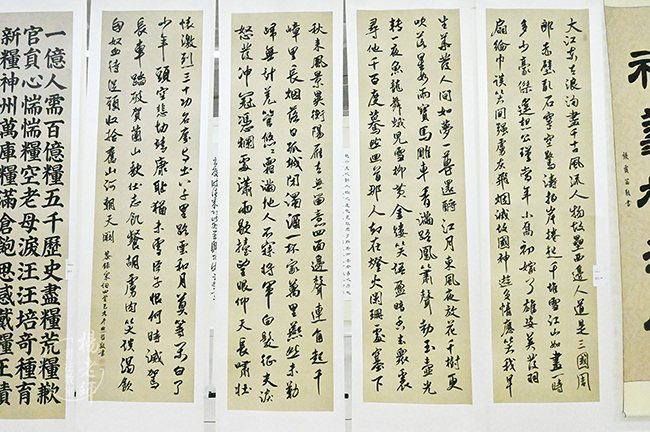 大江東去浪淘盡千古風流人物故壘西邊人道是三國周
郎赤壁亂石穿空驚濤拍岸捲起千堆雪江山如畫一時
多少豪傑遙想公瑾當年小喬初嫁了雄姿英發羽
扇綸巾談笑間強虜灰飛烟滅故國神遊多情應笑我早
生華髮人間如夢一尊還酹江月東風夜放花千樹更
吹落星如雨寶馬雕車香滿路鳳簫聲動玉壺光
轉一夜魚龍舞蛾兒雪柳黃金縷笑語盈盈暗香去眾裏
尋他千百度驀然回首那人卻在燈火闌珊處塞下
秋來風景異衡陽雁去無留意四面邊聲連角起千
嶂里長烟落日孤城閉濁酒一杯家萬里燕然未勒
歸無計羌管悠悠霜滿地人不寐將軍白髮征夫淚
怒髮沖冠憑欄處瀟瀟雨歇擡望眼仰天長嘯壯
懷激烈三十功名塵與土八千里路雲和月莫等閒白了
少年頭空悲切靖康恥猶未雪臣子恨何時滅駕
長車踏破賀蘭山缺壯志飢餐胡虜肉笑談渴飲
匈奴血待從頭收拾舊山河朝天闕
一億人需百億糧五千歷史盡糧荒糧歉
官貞心惴惴糧空老母淚汪汪培奇種育
新糧神州萬庫糧滿倉飽思感戴糧王績
楊老師